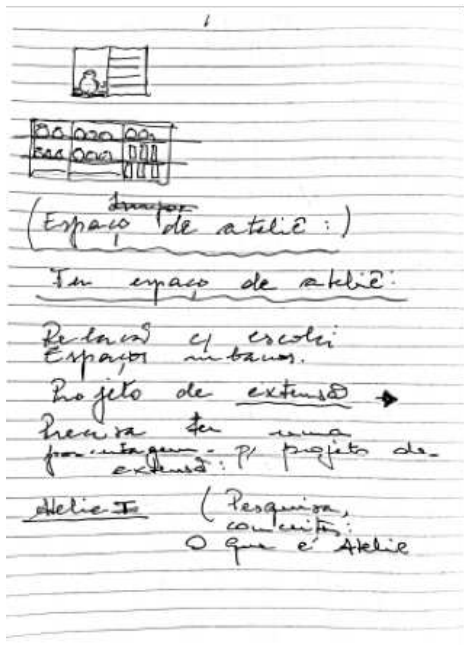 (Espaço de ateliê:)
Ter espaço de ateliê:
Relação c/ escola
Espaços urbanos.
Projeto de extensão →
Precisa ter uma
porcentagem p/ projeto de
extensão:
Atelie I (Pesquisa,
conceitos:
O que é Atelie